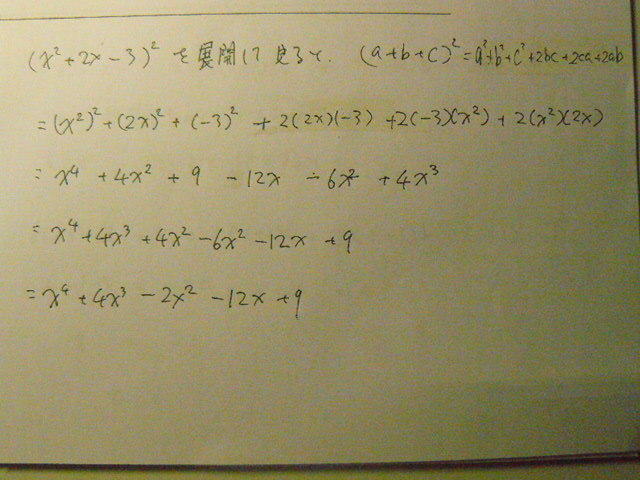 (x²+2x-3)² を展開して見ると、 (a+b+c)²=a²+b²+c²+2bc+2ca+2ab
=(x²)²+(2x)²+(-3)² +2(2x)(-3) +2(-3)(x²)+2(x²)(2x)
= x⁴ +4x² +9 -12x -6x² +4x³
= x⁴+4x³+4x²-6x²-12x+9
= x⁴+4x³-2x²-12x+9